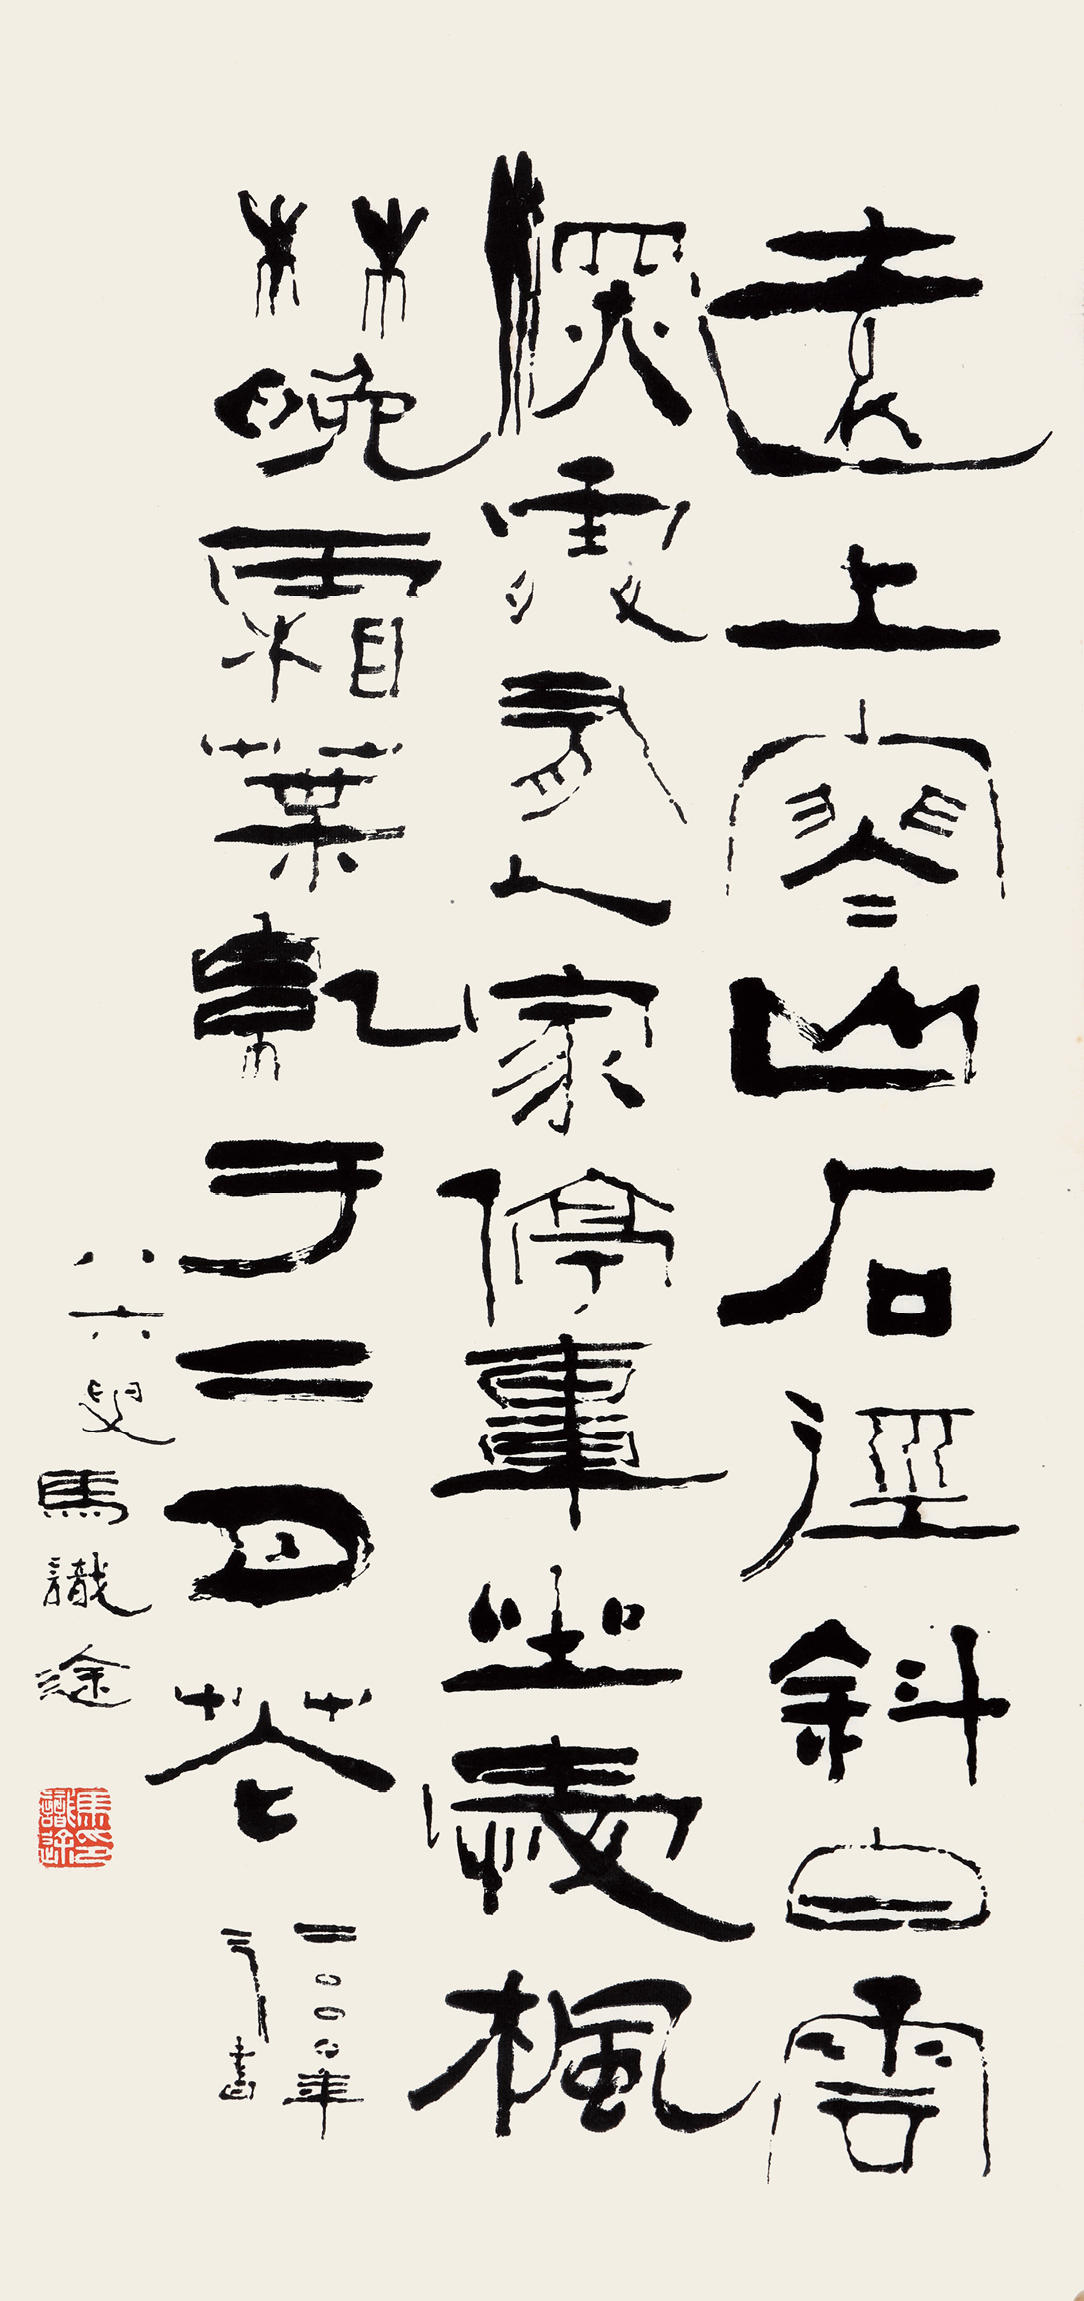 遠上寒山石徑斜白雲
深處有人家停車坐愛楓
林晚霜葉紅于二月花
二〇〇〇年
書
八六叟馬識途
馬印識途